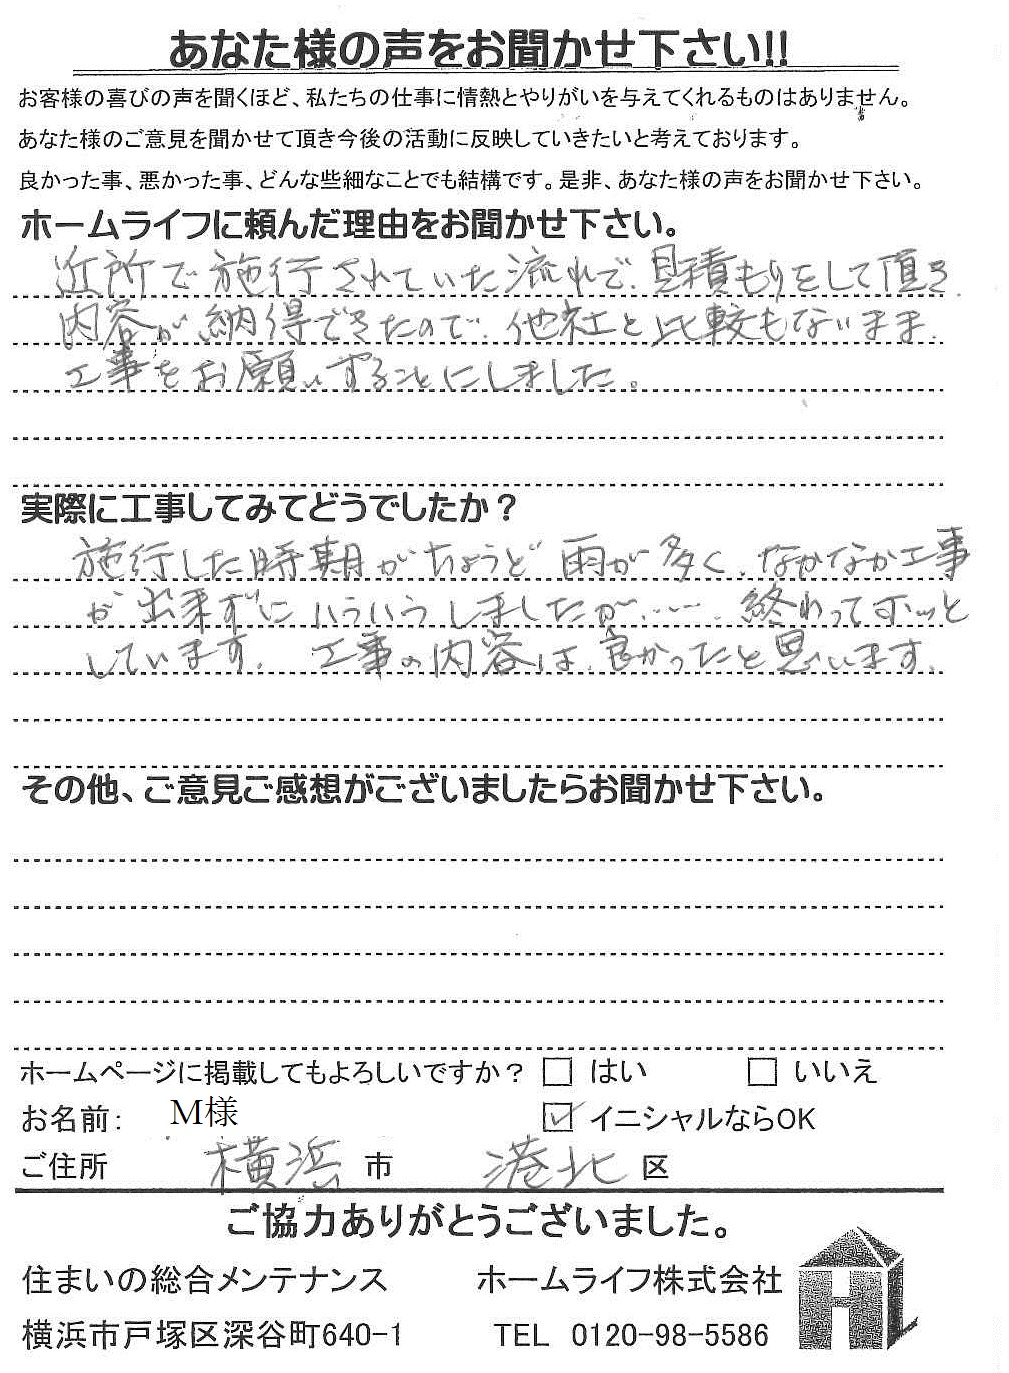 あなた様の声をお聞かせ下さい!!
お客様の喜びの声を聞くほど、私たちの仕事に情熱とやりがいを与えてくれるものはありません。
あなた様のご意見を聞かせて頂き今後の活動に反映していきたいと考えております。
良かった事、悪かった事、どんな些細なことでも結構です。是非、あなた様の声をお聞かせ下さい。
ホームライフに頼んだ理由をお聞かせ下さい。
近所で施行されていた流れで、見積もりをして頂き、
内容が納得できたので、他社と比較もないまま、
工事をお願いすることにしました。
実際に工事してみてどうでしたか？
施行した時期がちょうど雨が多く、なかなか工事
が出来ずにいらいらしましたが……、終わってホッと
しています。工事の内容は、良かったと思います。
その他、ご意見ご感想がございましたらお聞かせ下さい。
ホームページに掲載してもよろしいですか？ □ はい □ いいえ
お名前： M様 ☑ イニシャルならOK
ご住所 横浜 市 港北 区
ご協力ありがとうございました。
住まいの総合メンテナンス ホームライフ株式会社
横浜市戸塚区深谷町640-1 TEL 0120-98-5586